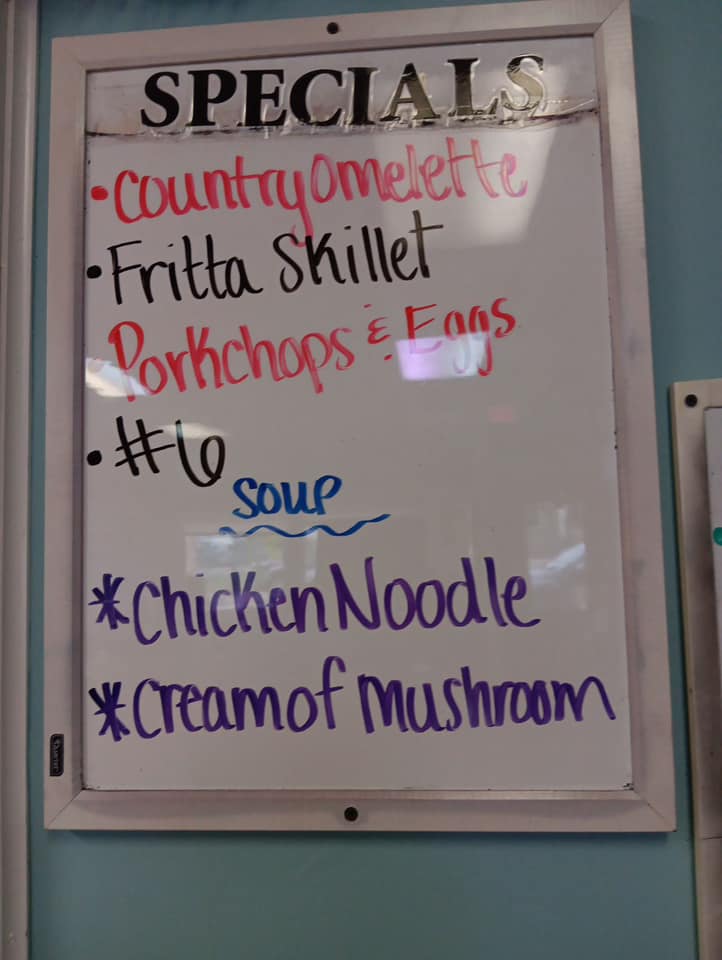 SPECIALS
•Country Omelette
•Fritta Skillet
•Porkchops & Eggs
•#6
SOUP
*Chicken Noodle
*Cream of Mushroom